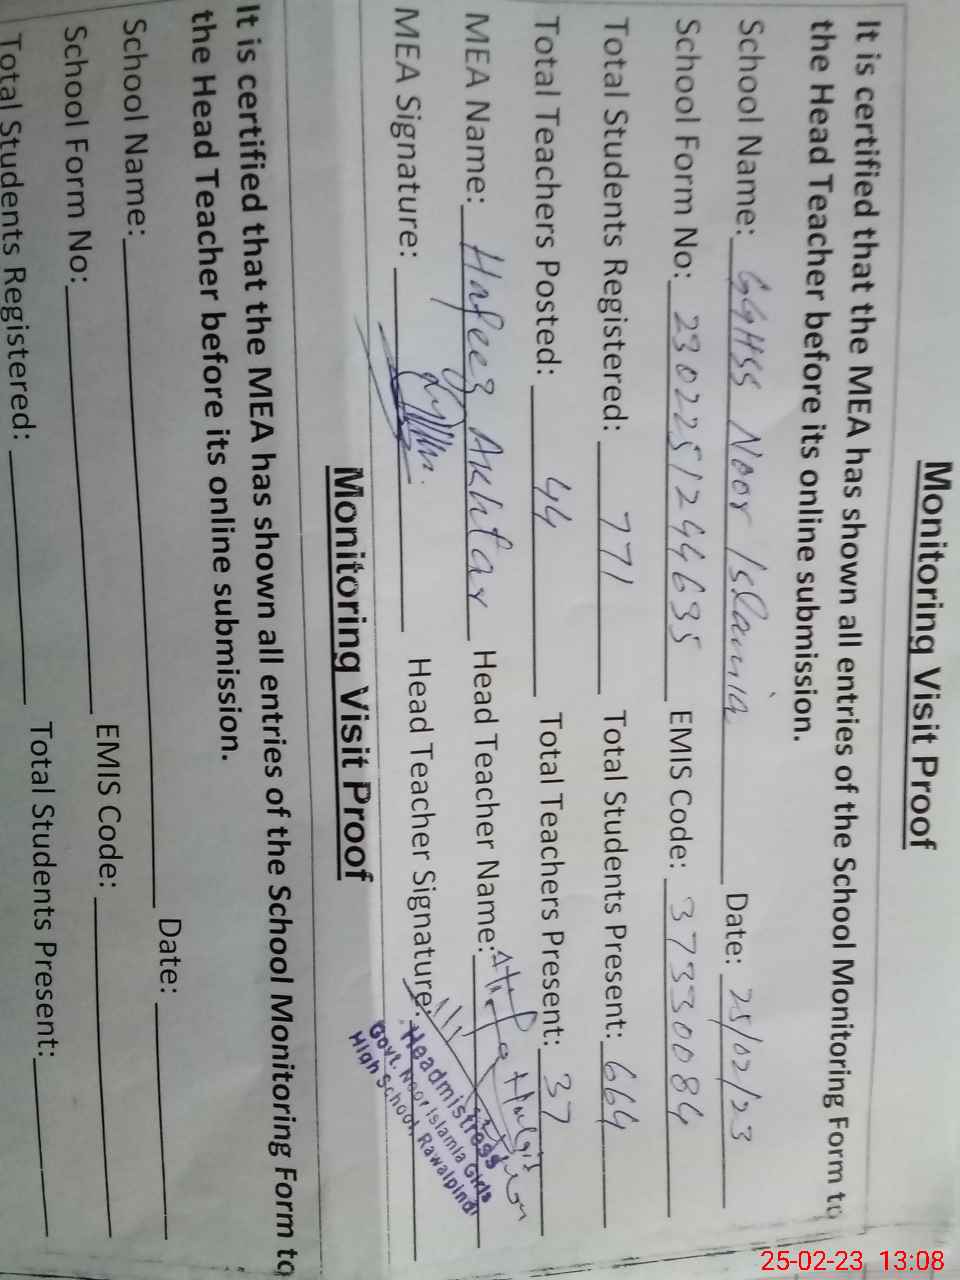 Monitoring Visit Proof
It is certified that the MEA has shown all entries of the School Monitoring Form to
the Head Teacher before its online submission.
School Name: GGHSS Noor Islamia Date: 25/02/23
School Form No: 2302251244635 EMIS Code: 37330084
Total Students Registered: 771 Total Students Present: 664
Total Teachers Posted: 44 Total Teachers Present: 37
MEA Name: Hafeez Akhtar Head Teacher Name:
MEA Signature: Head Teacher Signature:
Headmistress
Govt. Noor Islamia Girls
High School, Rawalpindi
Monitoring Visit Proof
It is certified that the MEA has shown all entries of the School Monitoring Form to
the Head Teacher before its online submission.
School Name: Date:
School Form No: EMIS Code:
Total Students Registered: Total Students Present:
25-02-23 13:08